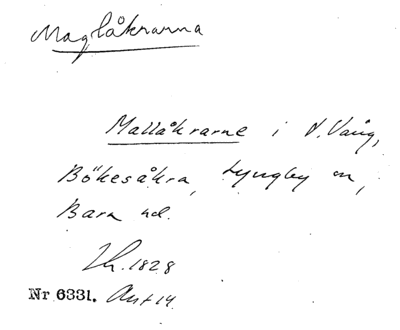 Maglåkrarna
Mallåkrarne i N. Vång,
Bökesåkra, Lyngby sn,
Bara hd.
Lh. 1828
Nr 6331. Akt 14